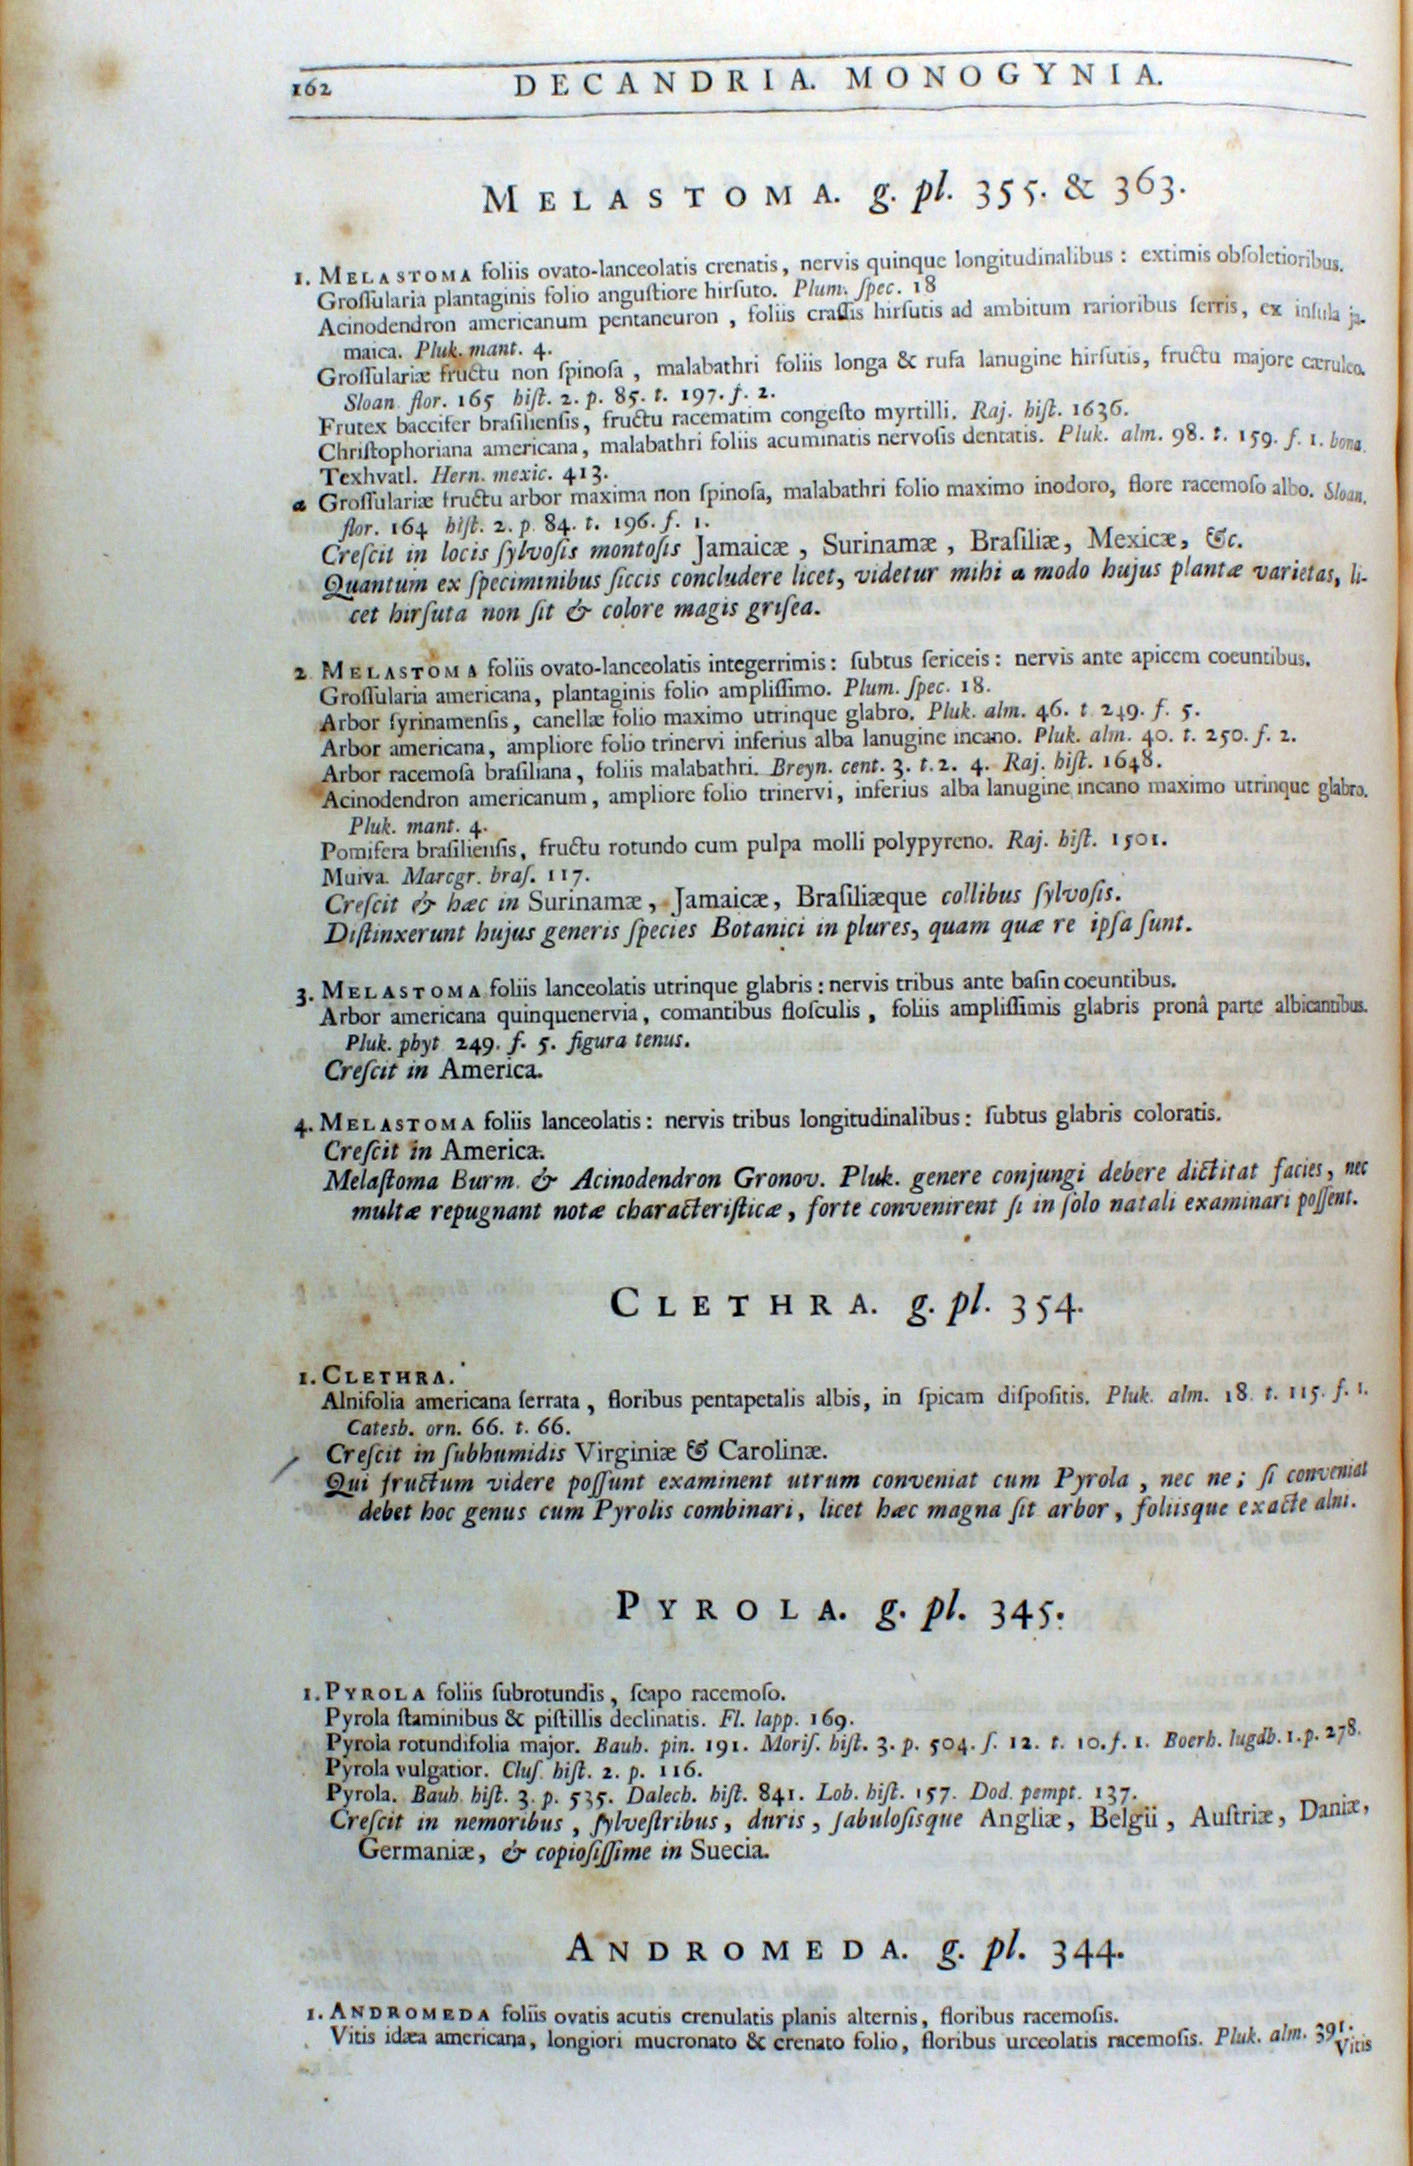 162 DECANDRIA. MONOGYNIA.
MELASTOMA. g. pl. 355. & 363.
1. MELASTOMA foliis ovato-lanceolatis crenatis, nervis quinque longitudinalibus : extimis obſoletioribus.
Groſſularia plantaginis folio anguſtiore hirſuto. Plum. ſpec. 18
Acinodendron americanum pentaneuron , foliis craſſis hirſutis ad ambitum rarioribus ſerris, ex inſula ja-
maica. Pluk. mant. 4.
Groſſulariæ fructu non ſpinoſa , malabathri foliis longa & rufa lanugine hirſutis, fructu majore cæruleo.
Sloan flor. 165 hiſt. 2. p. 85. t. 197. f. 2.
Frutex baccifer braſilienſis, fructu racematim congeſto myrtilli. Raj. hiſt. 1636.
Chriſtophoriana americana, malabathri foliis acuminatis nervoſis dentatis. Pluk. alm. 98. t. 159. f. 1. bona.
Texhvatl. Hern. mexic. 413.
α Groſſulariæ fructu arbor maxima non ſpinoſa, malabathri folio maximo inodoro, flore racemoſo albo. Sloan.
flor. 164 hiſt. 2. p. 84. t. 196. f. 1.
Creſcit in locis ſylvoſis montoſis Jamaicæ , Surinamæ , Braſiliæ, Mexicæ, &c.
Quantum ex ſpeciminibus ſiccis concludere licet, videtur mihi α modo hujus plantæ varietas, li-
cet hirſuta non ſit & colore magis griſea.
2 MELASTOMA foliis ovato-lanceolatis integerrimis : ſubtus ſericeis : nervis ante apicem coeuntibus.
Groſſularia americana, plantaginis folio ampliſſimo. Plum. ſpec. 18.
Arbor ſyrinamenſis, canellæ folio maximo utrinque glabro. Pluk. alm. 46. t 249. f. 5.
Arbor americana, ampliore folio trinervi inferius alba lanugine incano. Pluk. alm. 40. t. 250. f. 2.
Arbor racemoſa braſiliana, foliis malabathri. Breyn. cent. 3. t. 2. 4. Raj. hiſt. 1648.
Acinodendron americanum, ampliore folio trinervi, inferius alba lanugine incano maximo utrinque glabro.
Pluk. mant. 4.
Pomifera braſilienſis, fructu rotundo cum pulpa molli polypyreno. Raj. hiſt. 1501.
Muiva. Marcgr. braſ. 117.
Creſcit & hæc in Surinamæ, Jamaicæ, Braſiliæque collibus ſylvoſis.
Diſtinxerunt hujus generis ſpecies Botanici in plures, quam quæ re ipſa ſunt.
3. MELASTOMA foliis lanceolatis utrinque glabris : nervis tribus ante baſin coeuntibus.
Arbor americana quinquenervia, comantibus floſculis , foliis ampliſſimis glabris pronâ parte albicantibus.
Pluk. phyt 249. f. 5. figura tenus.
Creſcit in America.
4. MELASTOMA foliis lanceolatis : nervis tribus longitudinalibus : ſubtus glabris coloratis.
Creſcit in America.
Melaſtoma Burm. & Acinodendron Gronov. Pluk. genere conjungi debere dictitat facies, nec
multæ repugnant notæ characteriſticæ, forte convenirent ſi in ſolo natali examinari poſſent.
CLETHRA. g. pl. 354.
1. CLETHRA.
Alnifolia americana ſerrata , floribus pentapetalis albis, in ſpicam diſpoſitis. Pluk. alm. 18. t. 115. f. 1.
Catesb. orn. 66. t. 66.
Creſcit in ſubhumidis Virginiæ & Carolinæ.
Qui fructum videre poſſunt examinent utrum conveniat cum Pyrola , nec ne ; ſi conveniat
debet hoc genus cum Pyrolis combinari, licet hæc magna ſit arbor, foliisque exacte alni.
PYROLA. g. pl. 345.
1. PYROLA foliis ſubrotundis, ſcapo racemoſo.
Pyrola ſtaminibus & piſtillis declinatis. Fl. lapp. 169.
Pyrola rotundifolia major. Bauh. pin. 191. Moriſ. hiſt. 3. p. 504. ſ. 12. t. 10. f. 1. Boerh. lugdb. 1. p. 278.
Pyrola vulgatior. Cluſ. hiſt. 2. p. 116.
Pyrola. Bauh. hiſt. 3. p. 535. Dalech. hiſt. 841. Lob. hiſt. 157. Dod. pempt. 137.
Creſcit in nemoribus , ſylveſtribus, duris, ſabuloſisque Angliæ, Belgii , Auſtriæ, Daniæ,
Germaniæ, & copioſiſſime in Suecia.
ANDROMEDA. g. pl. 344.
1. ANDROMEDA foliis ovatis acutis crenulatis planis alternis, floribus racemoſis.
Vitis idæa americana, longiori mucronato & crenato folio, floribus urceolatis racemoſis. Pluk. alm. 391.
Vitis